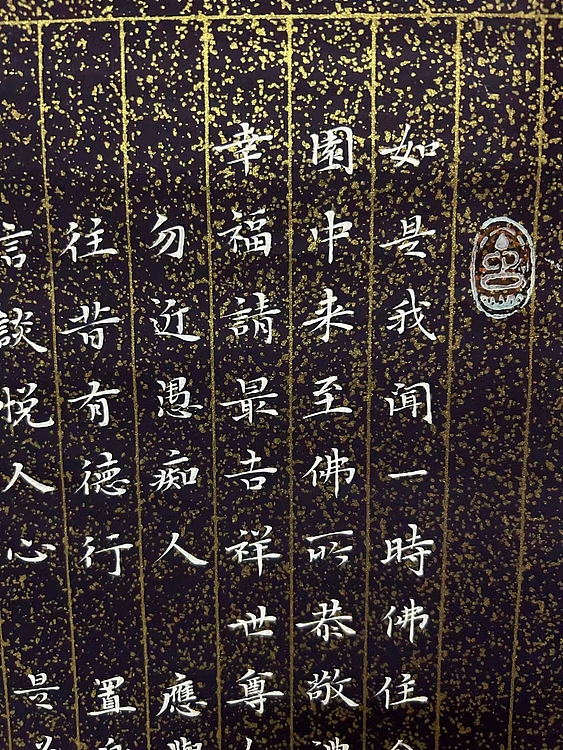 如是我闻一時佛住
園中来至佛所恭敬
幸福請最吉祥世尊
勿近愚痴人 應
往昔有德行 置
言談悦人心 是